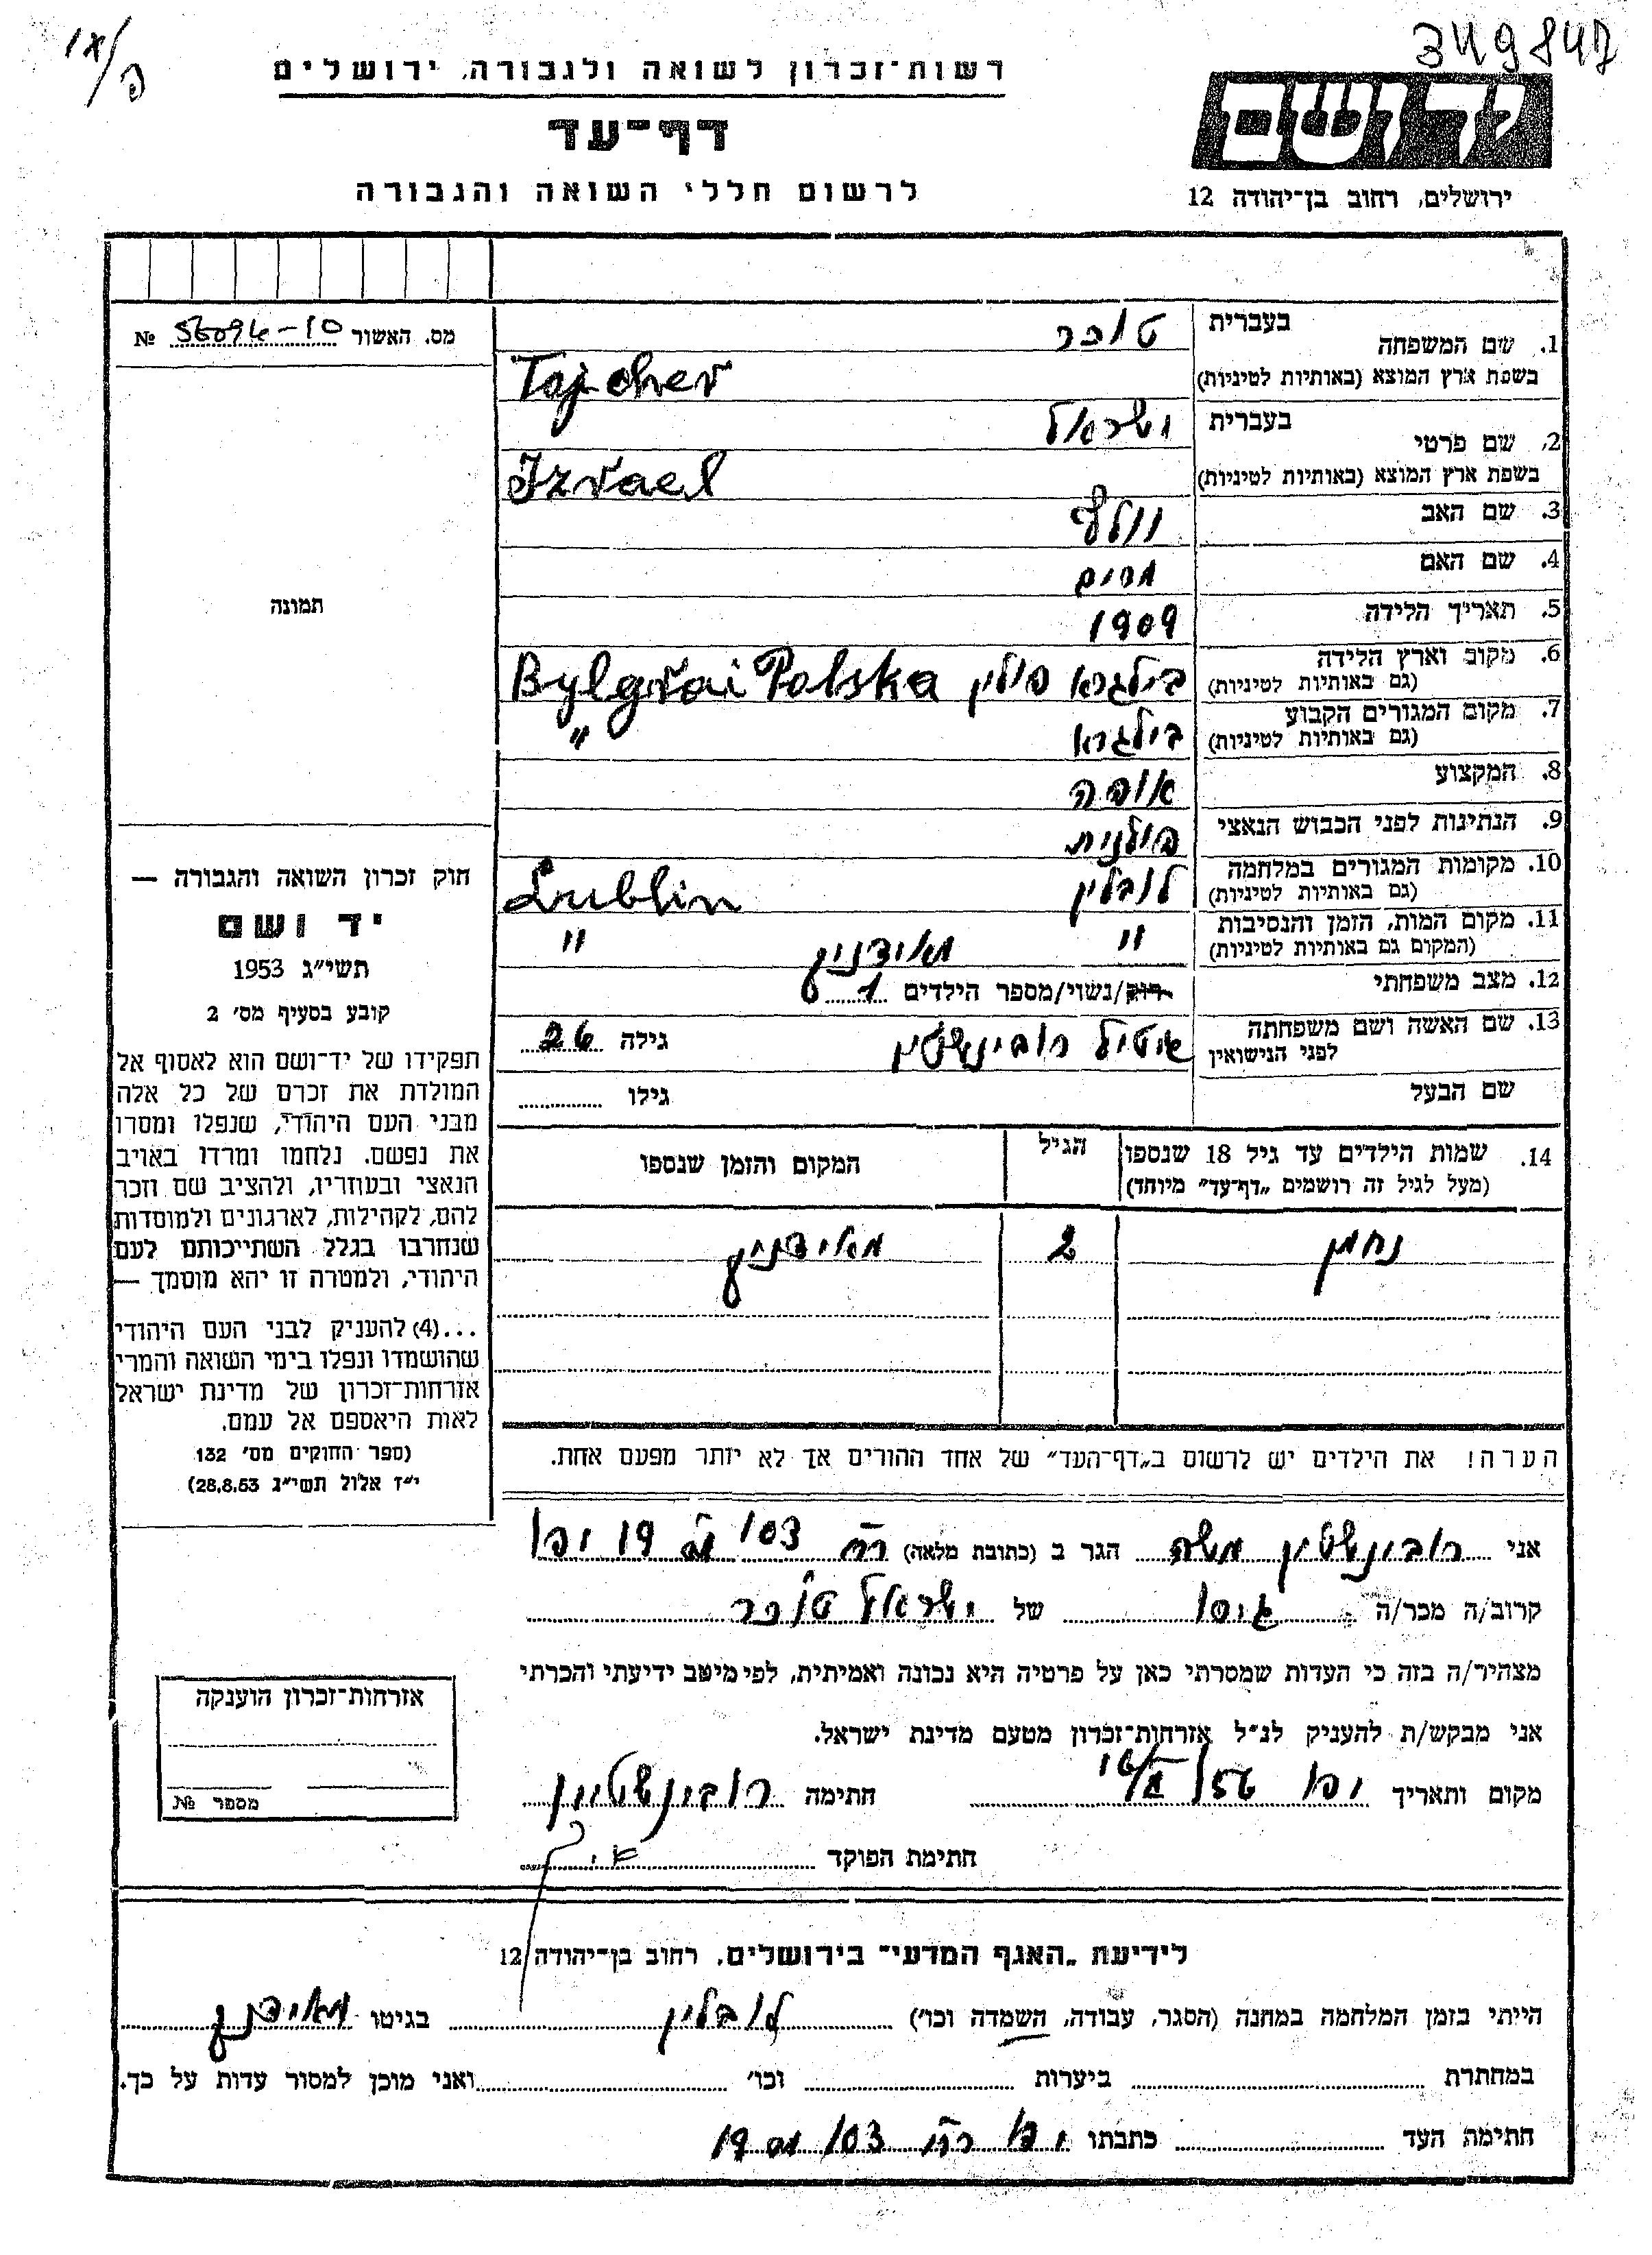 349847
פ/XI
רשות־זכרון לשואה ולגבורה, ירושלים
דף־עד
לרשום חללי השואה והגבורה
יד ושם
ירושלים, רחוב בן־יהודה 12
מס. האשור 56094-10 №
תמונה
חוק זכרון השואה והגבורה —
יד ושם
תשי״ג 1953
קובע בסעיף מס׳ 2
תפקידו של יד־ושם הוא לאסוף אל
המולדת את זכרם של כל אלה
מבני העם היהודי, שנפלו ומסרו
את נפשם, נלחמו ומרדו באויב
הנאצי ובעוזריו, ולהציב שם וזכר
להם, לקהילות, לארגונים ולמוסדות
שנחרבו בגלל השתייכותם לעם
היהודי, ולמטרה זו יהא מוסמך —
...(4) להעניק לבני העם היהודי
שהושמדו ונפלו בימי השואה והמרי
אזרחות־זכרון של מדינת ישראל
לאות היאספם אל עמם.
(ספר החוקים מס׳ 132
י״ז אלול תשי״ג 28.8.53)
1. שם המשפחה בעברית טוכר
בשפת ארץ המוצא (באותיות לטיניות) Tajcher
2. שם פרטי בעברית ישראל
בשפת ארץ המוצא (באותיות לטיניות) Izrael
3. שם האב וולף
4. שם האם מרים
5. תאריך הלידה 1909
6. מקום וארץ הלידה (גם באותיות לטיניות) בילגראי פולין Bylgrai Polska
7. מקום המגורים הקבוע (גם באותיות לטיניות) בילגראי "
8. המקצוע אופה
9. הנתינות לפני הכבוש הנאצי פולנית
10. מקומות המגורים במלחמה (גם באותיות לטיניות) לובלין Lublin
11. מקום המות, הזמן והנסיבות (המקום גם באותיות לטיניות) " מאידנק "
12. מצב משפחתי רווק/נשוי/מספר הילדים 1
13. שם האשה ושם משפחתה לפני הנישואין איטיל רובינשטין גילה 26
שם הבעל גילו
14. שמות הילדים עד גיל 18 שנספו (מעל לגיל זה רושמים „דף־עד״ מיוחד) הגיל המקום והזמן שנספו
נחמן 2 מאידנק
הערה! את הילדים יש לרשום ב„דף־העד״ של אחד ההורים אך לא יותר מפעם אחת.
אני רובינשטין משה הגר ב (כתובת מלאה) רח 103 מ 19 יפו
קרוב/ה מכר/ה גיסו של ישראל טוכר
מצהיר/ה בזה כי העדות שמסרתי כאן על פרטיה היא נכונה ואמיתית, לפי מיטב ידיעתי והכרתי
אני מבקש/ת להעניק לנ״ל אזרחות־זכרון מטעם מדינת ישראל.
מקום ותאריך יפו חתימה רובינשטיין
חתימת הפוקד
אזרחות־זכרון הוענקה
מספר №
לידיעת „האגף המדעי״ בירושלים, רחוב בן־יהודה 12
הייתי בזמן המלחמה במחנה (הסגר, עבודה, השמדה וכו׳) לובלין בגיטו מאידנק
במחתרת ביערות וכו׳ ואני מוכן למסור עדות על כך.
חתימת העד כתבתו יפו רח 103 מס 19